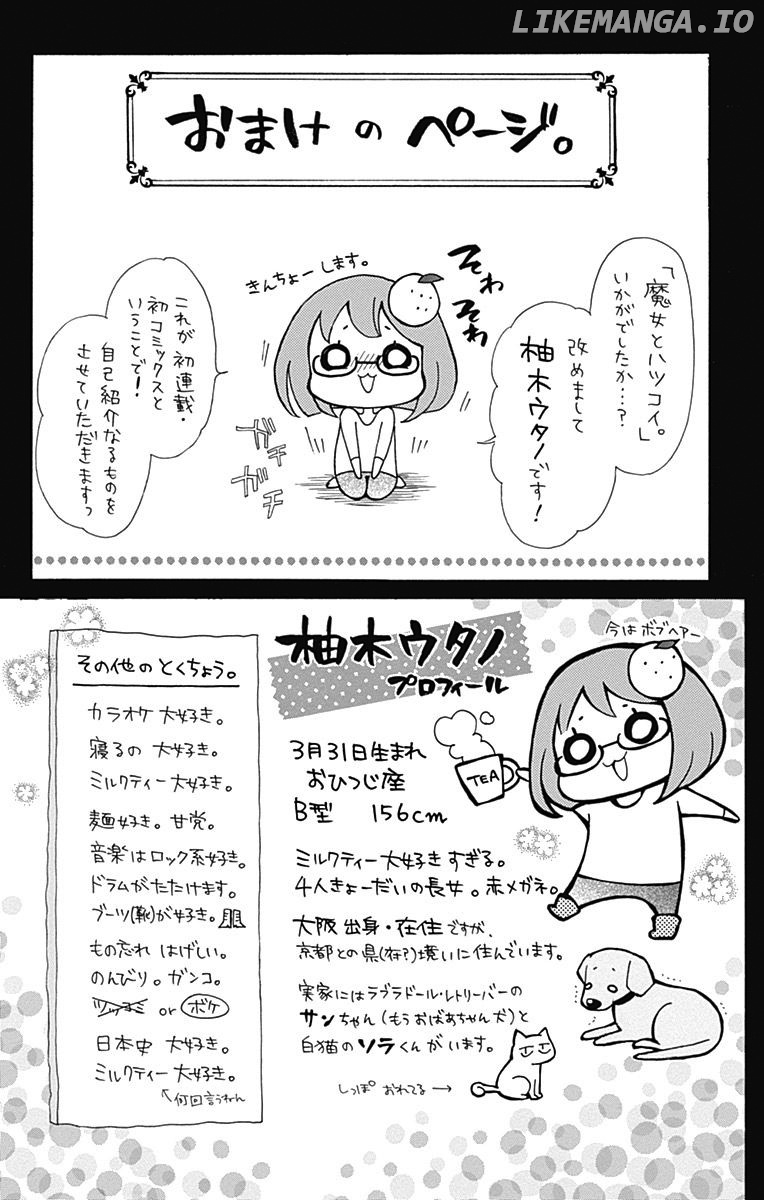 LIKEMANGA.IO
おまけの ページ。
「魔女とハツコイ。」
いかがでしたか…?
改めまして
柚木ウタノです!
そわ
そわ
きんちょーします。
ガチ
ガチ
これが初連載・
初コミックスと
いうことで!
自己紹介なるものを
させていただきますっ
柚木ウタノ
プロフィール
今はボブヘアー
TEA
3月31日生まれ
おひつじ座
B型 156cm
ミルクティー大好きすぎる。
4人きょーだいの長女。赤メガネ。
大阪出身・在住ですが、
京都との県(府?)境いに住んでいます。
実家にはラブラドール・レトリーバーの
サンちゃん(もうおばあちゃん犬)と
白猫のソラくんがいます。
しっぽ おれてる→
その他のとくちょう。
カラオケ 大好き。
寝るの 大好き。
ミルクティー 大好き。
麺好き。甘党。
音楽はロック系好き。
ドラムがたたけます。
ブーツ(靴)が好き。
もの忘れ はげしい。
のんびり。ガンコ。
ツッコミ or ボケ
日本史 大好き。
ミルクティー 大好き。
↖何回言うねん